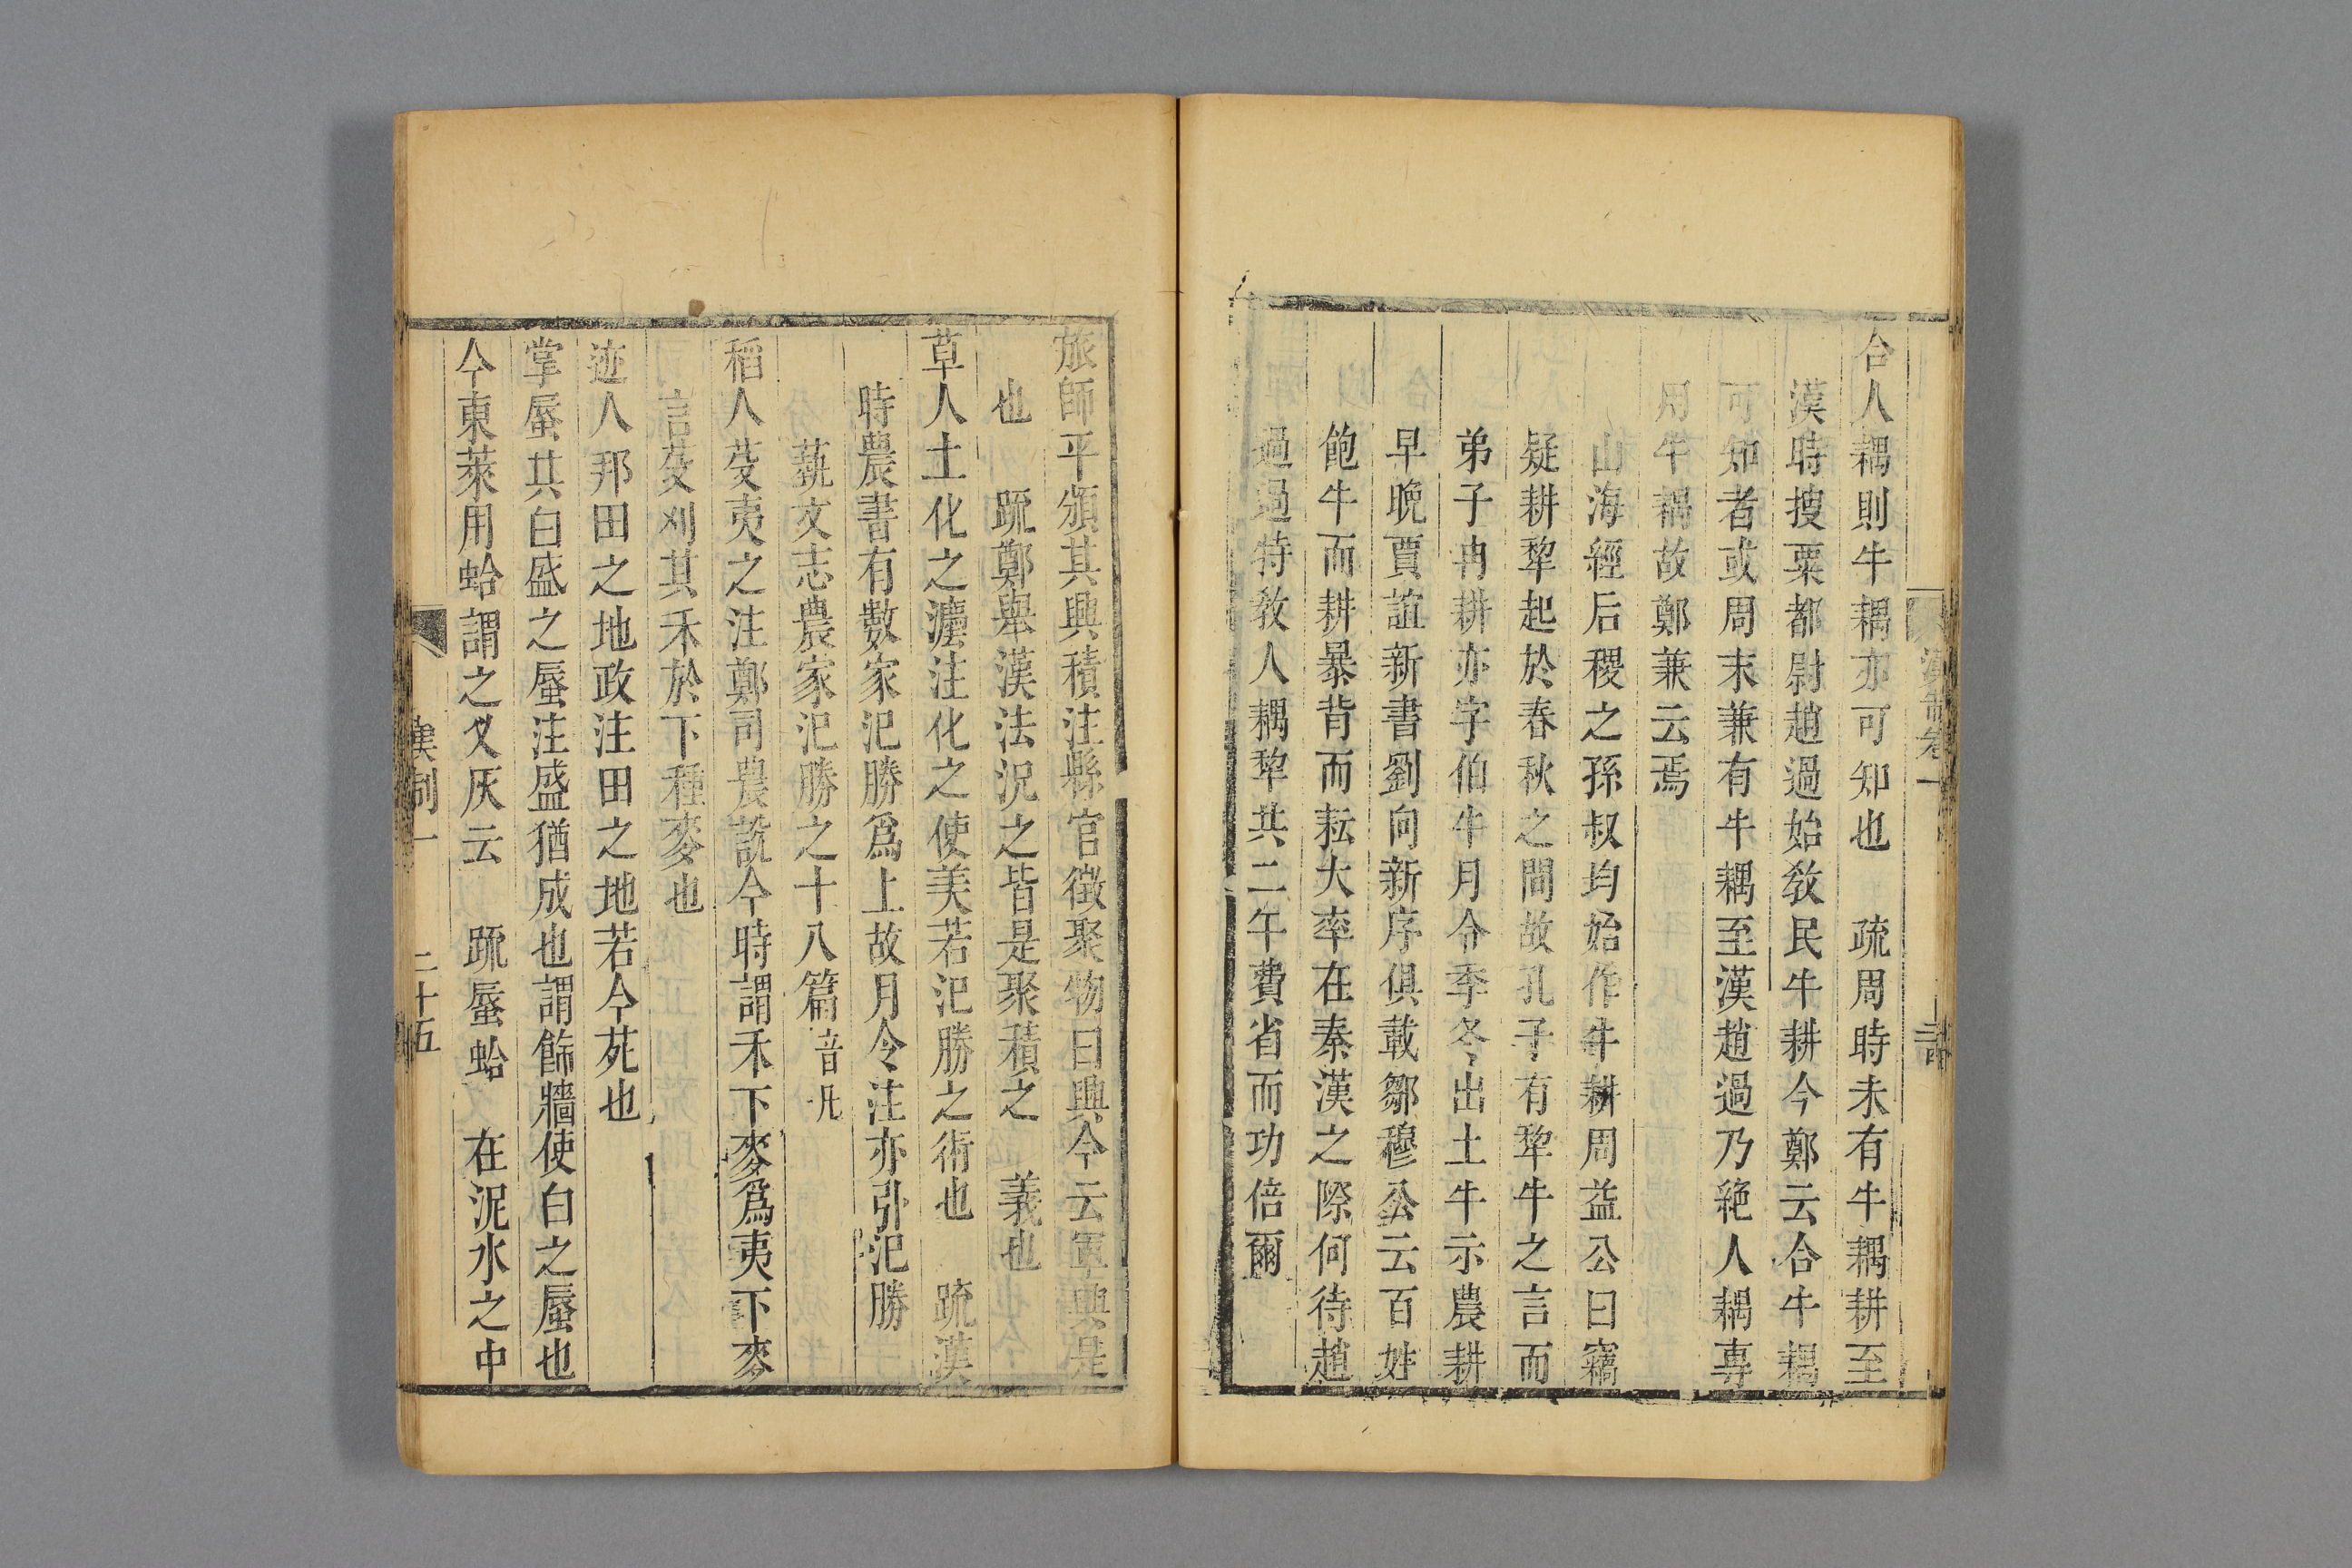 合人耦則牛耦亦可知也　疏周時未有牛耦耕至
漢時搜粟都尉趙過始敎民牛耕今鄭云合牛耦
可知者或周末兼有牛耦至漢趙過乃絶人耦專
用牛耦故鄭兼云焉
山海經后稷之孫叔均始作牛耕周益公曰竊
疑耕犂起於春秋之間故孔子有犂牛之言而
弟子冉耕亦字伯牛月令季冬出土牛示農耕
早晩賈誼新書劉向新序俱載鄒穆公云百姓
飽牛而耕暴背而耘大率在秦漢之際何待趙
過過特敎人耦犂共二牛費省而功倍爾
旅師平頒其興積注縣官徵聚物曰興今云軍興是
也　疏鄭舉漢法況之皆是聚積之　義也
草人土化之灋注化之使美若氾勝之術也　疏漢
時農書有數家氾勝爲上故月令注亦引氾勝
蓺文志農家氾勝之十八篇音凡
稻人芟夷之注鄭司農說今時謂禾下麥爲夷下麥
言芟刈其禾於下種麥也
迹人邦田之地政注田之地若今苑也
掌蜃共白盛之蜃注盛猶成也謂飾牆使白之蜃也
今東萊用蛤謂之叉灰云　疏蜃蛤　在泥水之中
漢制一　二十五